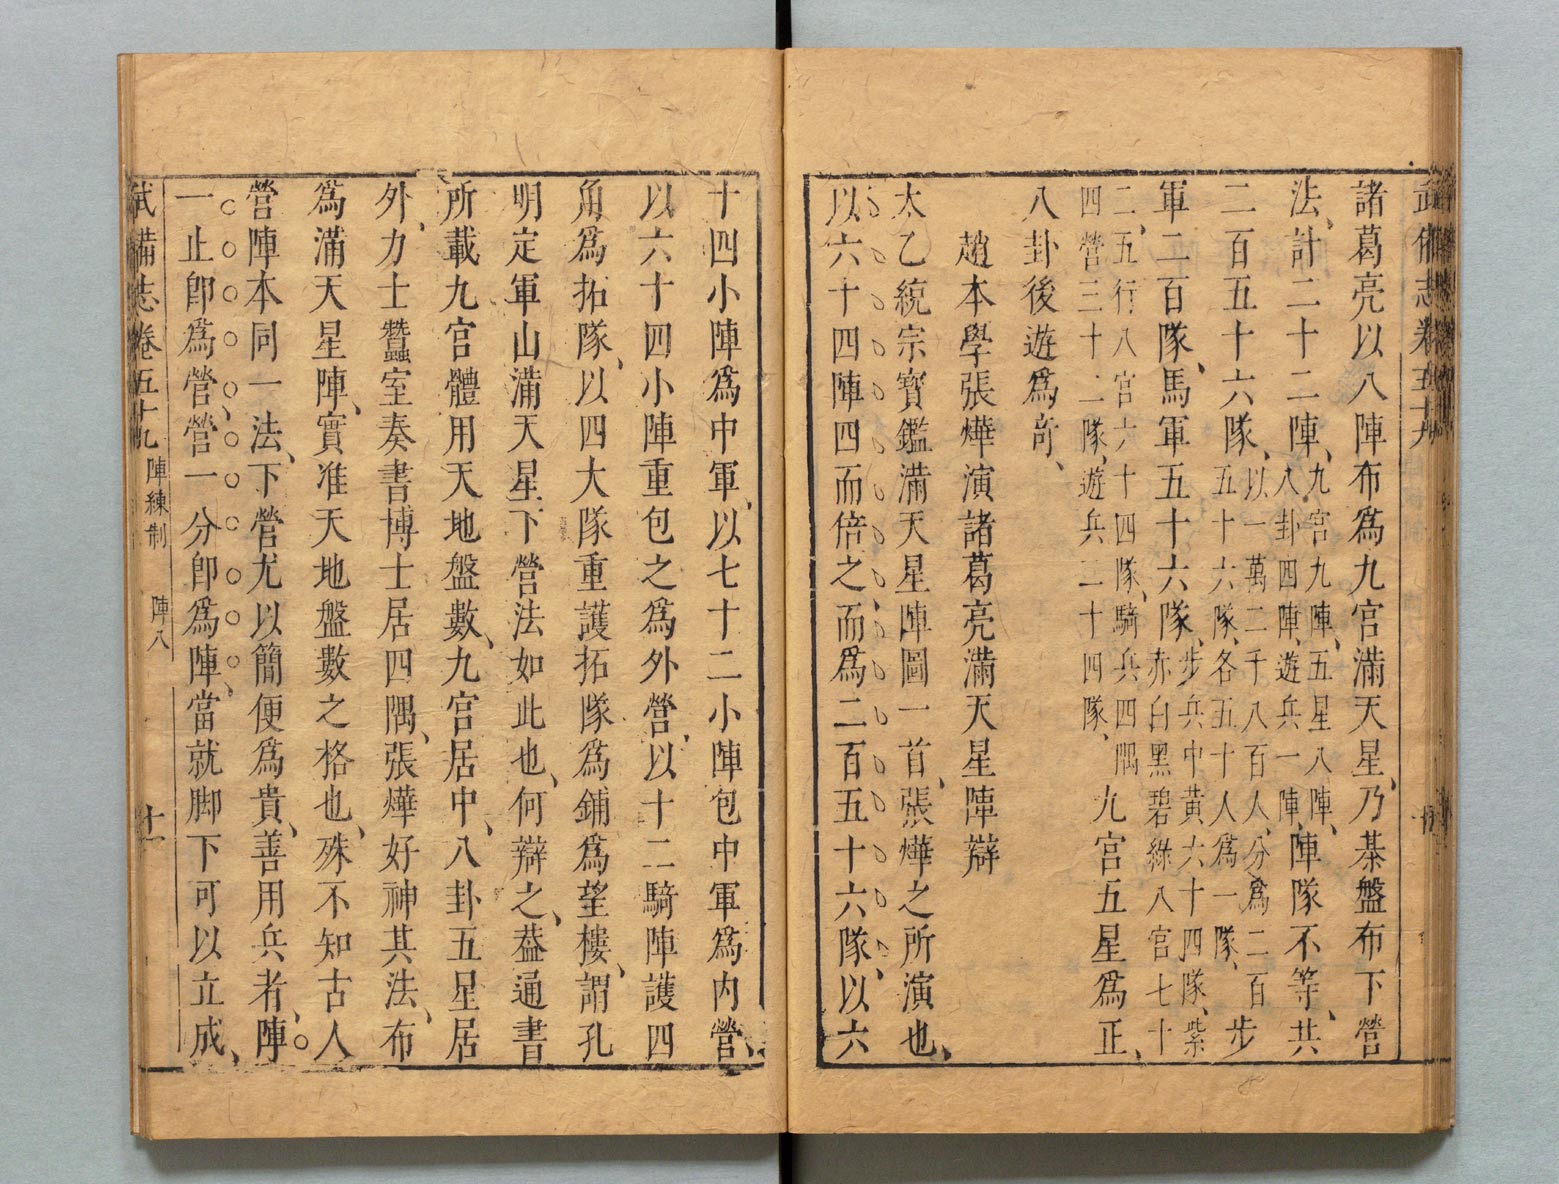 武備志卷五十九
諸葛亮以八陣布爲九宮滿天星、乃棊盤布下營
法、計二十二陣、九宮九陣、五星八陣、八卦四陣、遊兵一陣、陣隊不等、共
二百五十六隊、以一萬二千八百人、分爲二百五十六隊、各五十人爲一隊、步
軍二百隊、馬軍五十六隊、步兵中黃六十四隊、紫赤白黑碧綠八宮七十
二、五行八宮六十四隊、騎兵四隅四營三十二隊、遊兵二十四隊、九宮五星爲正、
八卦後遊爲奇、
趙本學張燁演諸葛亮滿天星陣辯
太乙統宗寶鑑滿天星陣圖一首、張燁之所演也、
以六十四陣四而倍之、而爲二百五十六隊、以六
十四小陣爲中軍、以七十二小陣包中軍爲內營、
以六十四小陣重包之爲外營、以十二騎陣護四
角爲拓隊、以四大隊重護拓隊爲鋪爲望樓、謂孔
明定軍山滿天星下營法如此也、何辯之、葢通書
所載九宮體用天地盤數、九宮居中、八卦五星居
外、力士蠶室奏書博士居四隅、張燁好神其法、布
爲滿天星陣、實准天地盤數之格也、殊不知古人
營陣本同一法、下營尤以簡便爲貴、善用兵者、陣
一止卽爲營、營一分卽爲陣、當就脚下可以立成、
武備志卷五十九 陣練制 陣八 十一